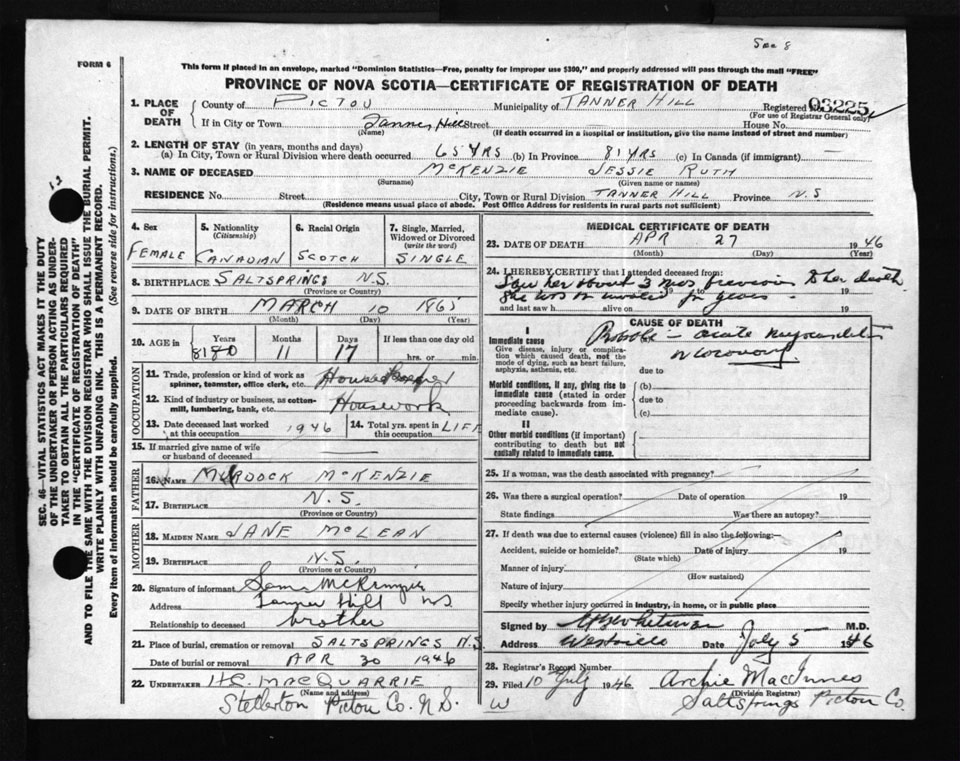 See 8
FORM 6
This form if placed in an envelope, marked "Dominion Statistics—Free, penalty for improper use $300," and properly addressed will pass through the mail "FREE"
PROVINCE OF NOVA SCOTIA—CERTIFICATE OF REGISTRATION OF DEATH
1. PLACE OF DEATH
County of PICTOU Municipality of TANNER HILL Registered No. 03225
(For use of Registrar General only)
If in City or Town Tanner Hill Street House No.
(Name) (If death occurred in a hospital or institution, give the name instead of street and number)
2. LENGTH OF STAY (in years, months and days)
(a) In City, Town or Rural Division where death occurred 65 YRS (b) In Province 81 YRS (c) In Canada (if immigrant) —
3. NAME OF DECEASED McKENZIE JESSIE RUTH
(Surname) (Given name or names)
RESIDENCE No. Street City, Town or Rural Division TANNER HILL Province N.S
(Residence means usual place of abode. Post Office Address for residents in rural parts not sufficient)
4. Sex
FEMALE
5. Nationality
(Citizenship)
CANADIAN
6. Racial Origin
SCOTCH
7. Single, Married, Widowed or Divorced
(write the word)
SINGLE
8. BIRTHPLACE SALTSPRINGS N.S.
(Province or Country)
9. DATE OF BIRTH MARCH 10 1865
(Month) (Day) (Year)
10. AGE in
Years Months Days If less than one day old
81 80 11 17 hrs. or min.
OCCUPATION
11. Trade, profession or kind of work as spinner, teamster, office clerk, etc. Housekeeper
12. Kind of industry or business, as cotton-mill, lumbering, bank, etc. Housework
13. Date deceased last worked at this occupation 1946
14. Total yrs. spent in this occupation LIFE
15. If married give name of wife or husband of deceased
FATHER
16. Name MURDOCK McKENZIE
17. BIRTHPLACE N.S.
(Province or Country)
MOTHER
18. MAIDEN NAME JANE McLEAN
19. BIRTHPLACE N.S.
(Province or Country)
20. Signature of informant Sam McKenzie
Address Tanner Hill N.S
Relationship to deceased brother
21. Place of burial, cremation or removal SALTSPRINGS N.S
Date of burial or removal APR 30 1946
22. UNDERTAKER H.C. MACQUARRIE
(Name and address)
Stellarton Pictou Co. N.S.
MEDICAL CERTIFICATE OF DEATH
23. DATE OF DEATH APR 27 1946
(Month) (Day) (Year)
24. I HEREBY CERTIFY that I attended deceased from:
Saw her about 3 mos previous to her death
19
She was an invalid for years - 19
and last saw h alive on 19
CAUSE OF DEATH
I
Immediate cause
Give disease, injury or complication which caused death, not the mode of dying, such as heart failure, asphyxia, asthenia, etc.
Probable – acute myocarditis
or coronary
due to
Morbid conditions, if any, giving rise to immediate cause (stated in order proceeding backwards from immediate cause).
(b)
due to
(c)
II
Other morbid conditions (if important) contributing to death but not causally related to immediate cause.
25. If a woman, was the death associated with pregnancy?
26. Was there a surgical operation? Date of operation 19
State findings Was there an autopsy?
27. If death was due to external causes (violence) fill in also the following:—
Accident, suicide or homicide? Date of injury 19
(State which)
Manner of injury
(How sustained)
Nature of injury
Specify whether injury occurred in industry, in home, or in public place
Signed by Whitman M.D.
Address Westville Date July 5 1946
28. Registrar's Record Number
29. Filed 10 July 1946 Archie MacInnes
(Division Registrar)
W Saltsprings Pictou Co.
12
SEC. 46—VITAL STATISTICS ACT MAKES IT THE DUTY
OF THE UNDERTAKER OR PERSON ACTING AS UNDER-
TAKER TO OBTAIN ALL THE PARTICULARS REQUIRED
IN THE "CERTIFICATE OF REGISTRATION OF DEATH"
AND TO FILE THE SAME WITH THE DIVISION REGISTRAR WHO SHALL ISSUE THE BURIAL PERMIT.
WRITE PLAINLY WITH UNFADING INK. THIS IS A PERMANENT RECORD.
Every item of information should be carefully supplied. (See reverse side for Instructions.)